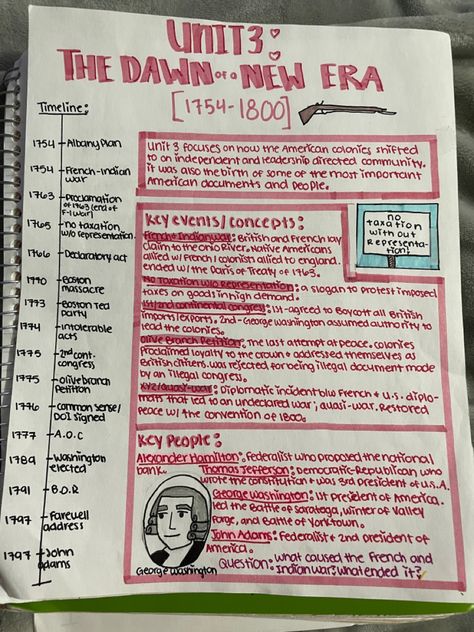 UNIT 3:
THE DAWN of a NEW ERA
[1754-1800]
Timeline:
1754 - Albany Plan
1754 - French-Indian war
1763 - Proclamation of 1763 (end of F-I war)
1765 - no taxation w/o representation
1766 - Declaratory act
1770 - Boston massacre
1773 - Boston tea party
1774 - intolerable acts
1775 - 2nd cont. congress
1775 - olive branch Petition
1776 - common sense/ DOI signed
1777 - A.O.C
1789 - Washington elected
1791 - B.O.R
1797 - Farewell address
1797 - John adams
Unit 3 focuses on how the American colonies shifted
to an independent and leadership directed community.
it was also the birth of some of the most important
American documents and people.
Key events/concepts:
French & Indian war: British and French lay
claim to the Ohio River. Native Americans
allied w/ French & colonist allied to england.
ended w/ the Paris of Treaty of 1763.
no
taxation
with out
Representa-
tion!
No taxation w/o Representation: a slogan to protest imposed
taxes on goods in high demand.
1st/2nd continental congress: 1st-agreed to Boycott all British
imports/exports. 2nd-George Washington assumed authority to
lead the colonies.
Olive Branch Petition: the last attempt at peace. colonies
proclaimed loyalty to the crown & addressed themselves as
British citizens. was rejected for being illegal document made
by an illegal congress.
XYZ/quasi-war: Diplomatic incident b/w French & U.S. diplo-
mats that led to an undeclared war; quasi-war. Restored
peace w/ the convention of 1800.
Key People:
Alexander Hamilton: Federalist who proposed the national
bank.
Thomas Jefferson: Democratic-Republican who
wrote the constitution & was 3rd president of U.S.A.
George Washington: 1st president of America.
led the Battle of Saratoga, winter of Valley
Forge, and Battle of Yorktown.
John Adams: Federalist & 2nd president of
America.
George Washington
Question: what caused the French and
Indian war? what ended it?